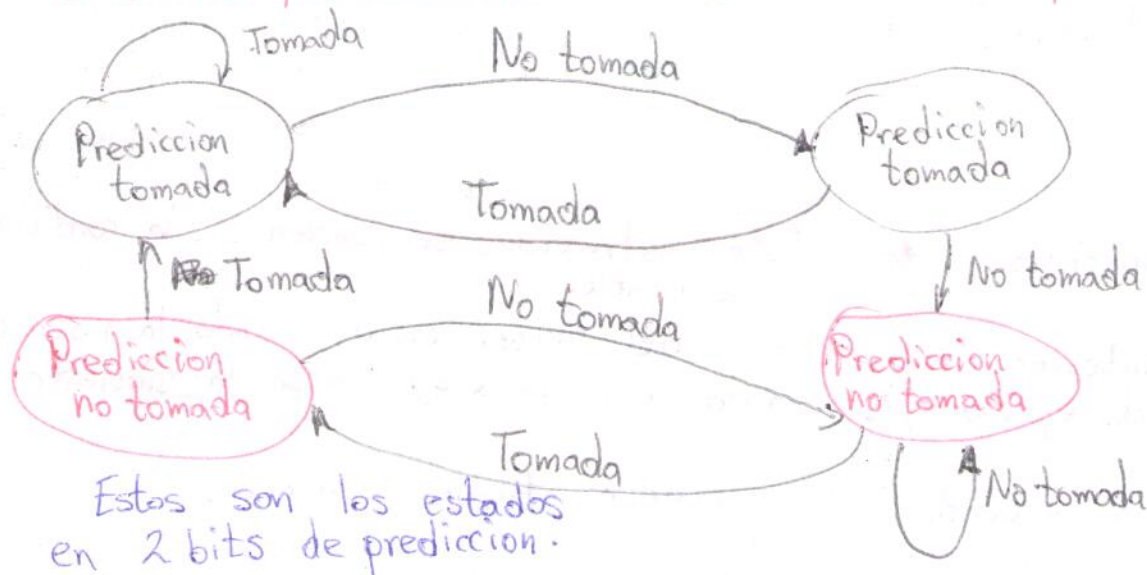 Tomada
No tomada
Prediccion
tomada
Prediccion
tomada
Tomada
Tomada
No tomada
No tomada
Prediccion
no tomada
Prediccion
no tomada
Tomada
No tomada
Estos son los estados
en 2 bits de prediccion.